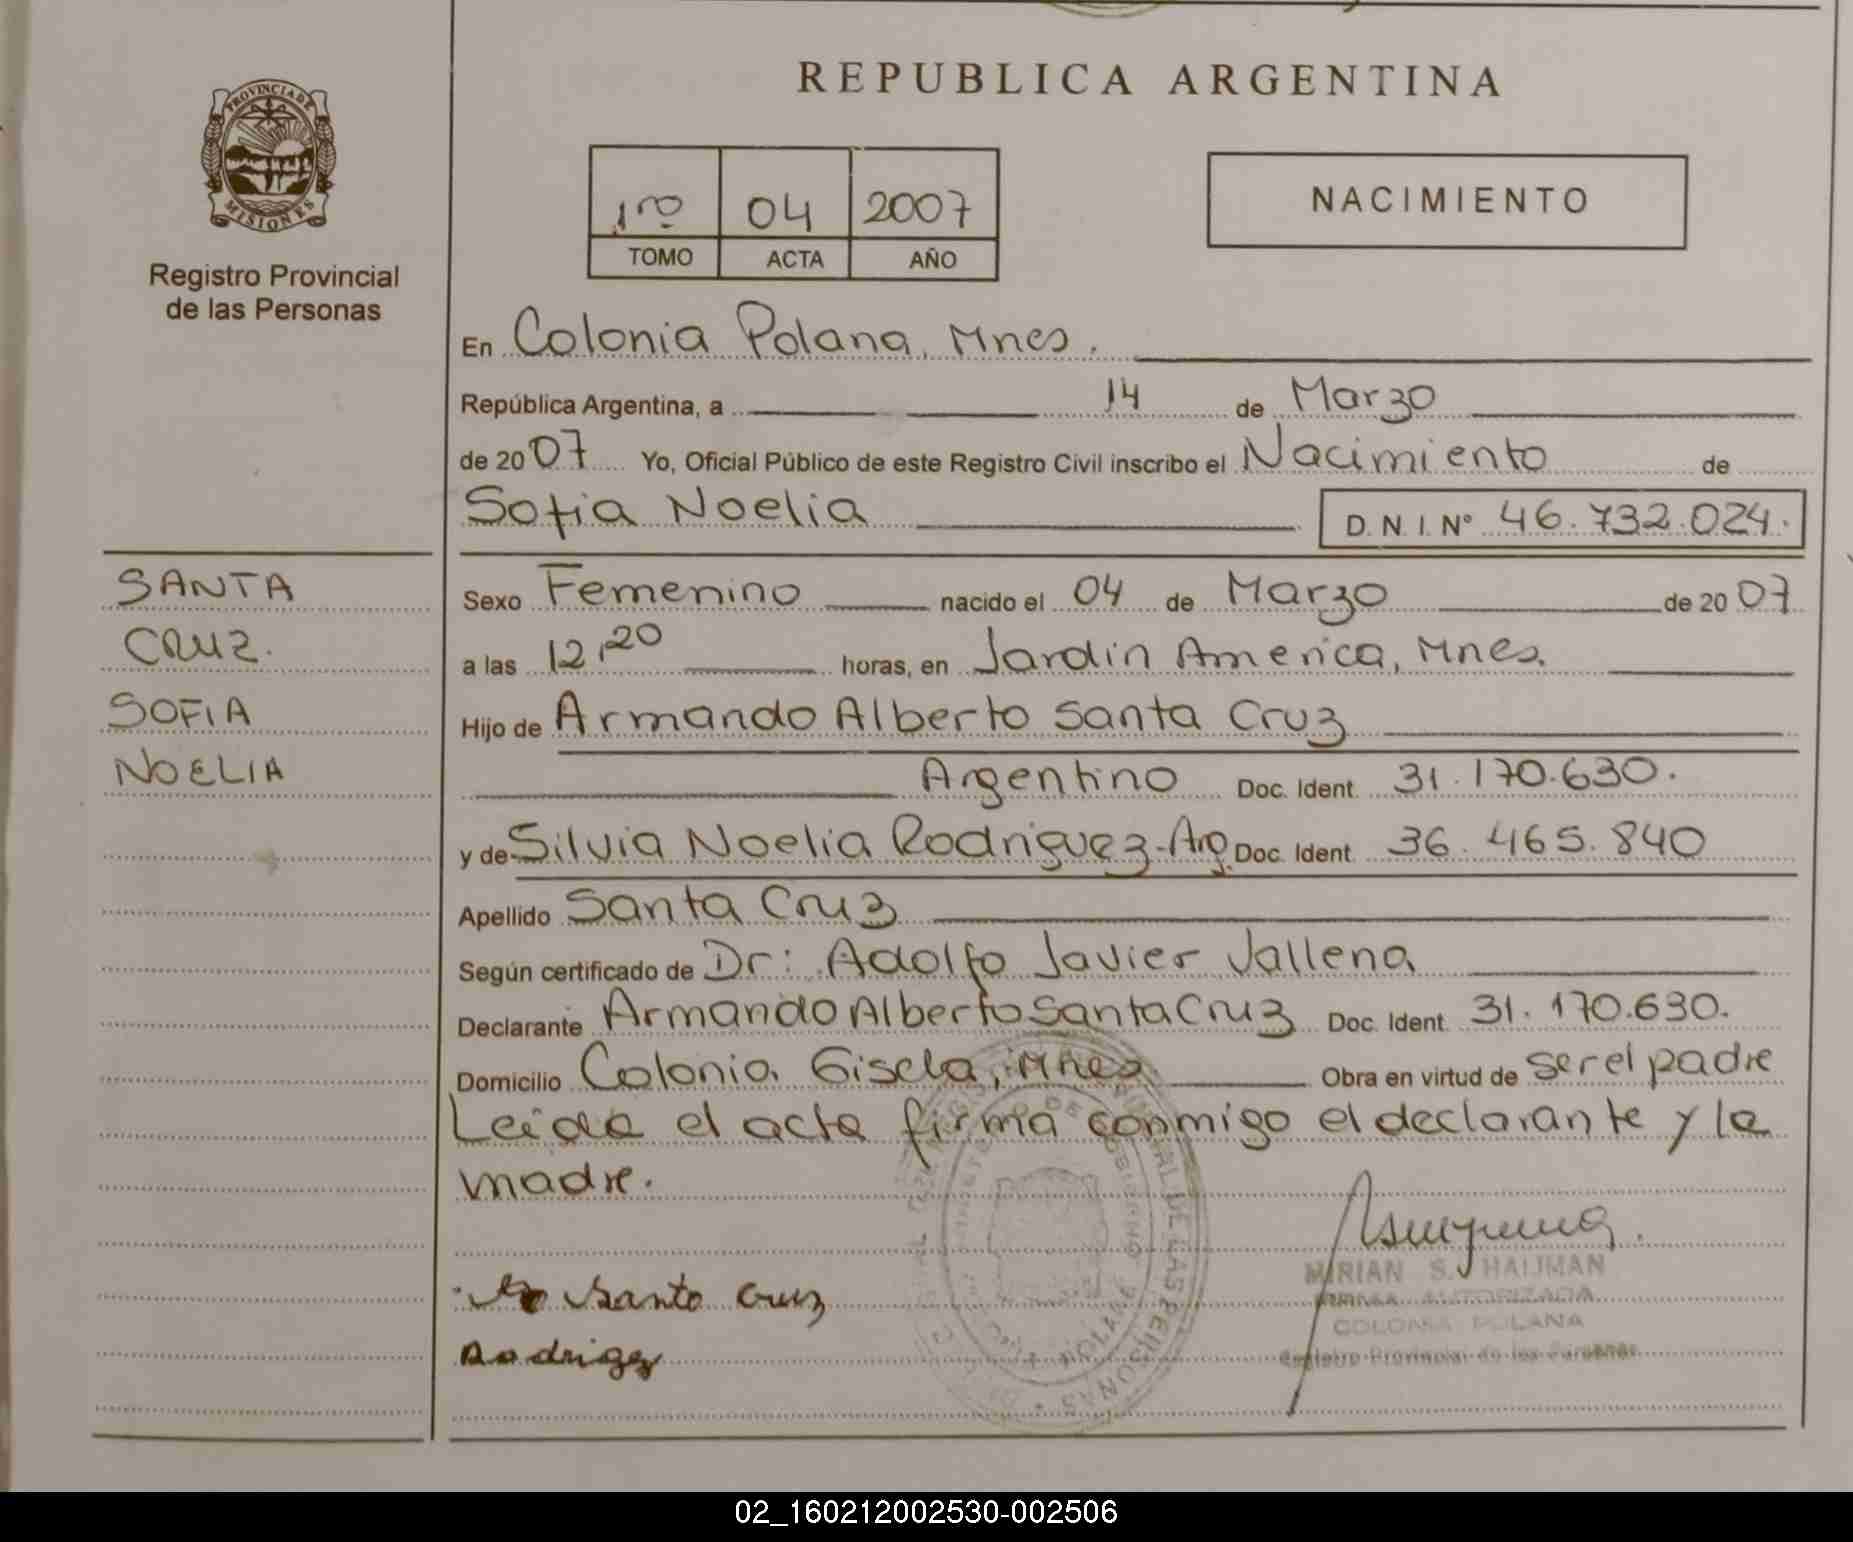 REPUBLICA ARGENTINA
PROVINCIA DE
MISIONES
Registro Provincial
de las Personas
1ro 04 2007
TOMO ACTA AÑO
NACIMIENTO
En Colonia Polana, Mnes.
República Argentina, a 14 de Marzo
de 2007 Yo, Oficial Público de este Registro Civil inscribo el Nacimiento de
Sofia Noelia D. N. I. Nº 46.732.024.
SANTA
CRUZ.
SOFIA
NOELIA
Sexo Femenino nacido el 04 de Marzo de 2007
a las 12,20 horas, en Jardin America, Mnes.
Hijo de Armando Alberto Santa Cruz
Argentino Doc. Ident. 31.170.630.
y de Silvia Noelia Rodriguez-Arg. Doc. Ident. 36.465.840
Apellido Santa Cruz
Según certificado de Dr: Adolfo Javier Vallena
Declarante Armando Alberto Santa Cruz Doc. Ident. 31.170.630.
Domicilio Colonia Gisela, Mnes Obra en virtud de ser el padre
Leida el acta firma conmigo el declarante y la
madre.
Santo Cruz
Rodrigez
MIRIAN S. HAUMAN
FIRMA AUTORIZADA
COLONIA POLANA
Registro Provincial de las Personas
02_160212002530-002506